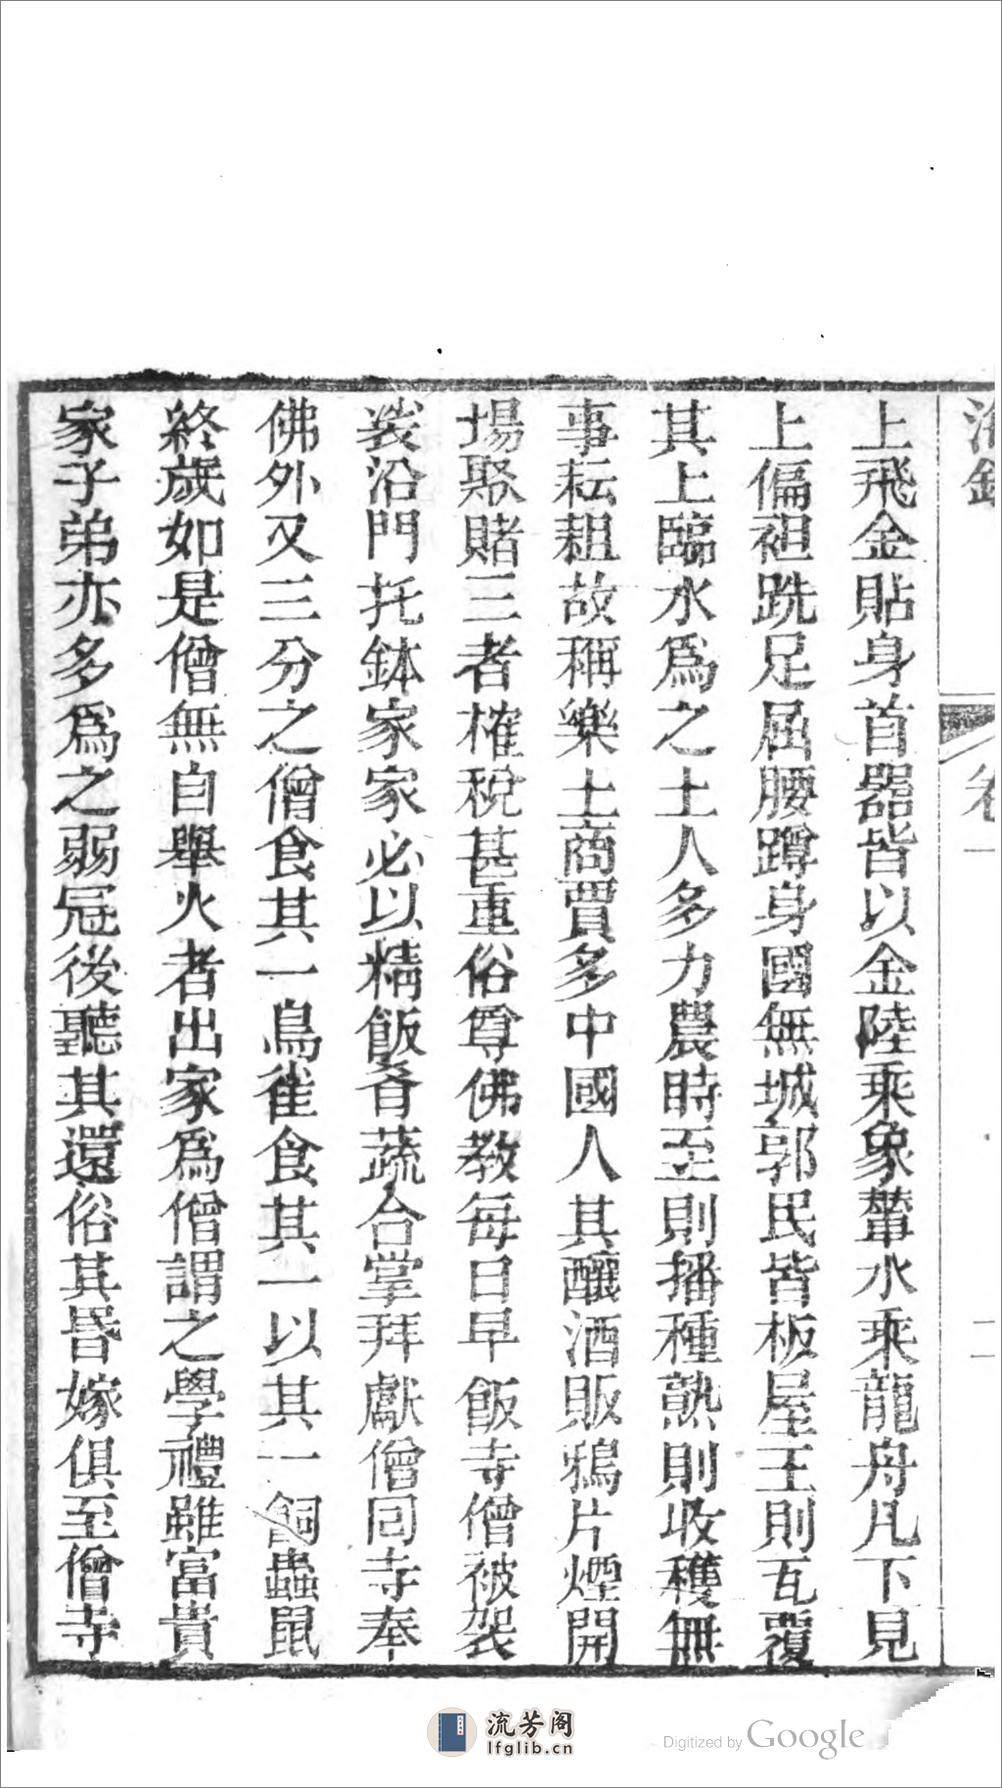 海錄
卷一
二
上飛金貼身首器皆以金陸乘象輦水乘龍舟凡下見
上偏袒跣足屈腰蹲身國無城郭民皆板屋王則瓦覆
其上臨水爲之土人多力農時至則播種熟則收穫無
事耘耡故稱樂土商賈多中國人其釀酒販鴉片煙開
場聚賭三者榷稅甚重俗尊佛教每日早飯寺僧被袈
裟沿門托鉢家家必以精飯香蔬合掌拜獻僧囘寺奉
佛外又三分之僧食其一鳥雀食其一以其一飼蟲鼠
終歲如是僧無自舉火者出家爲僧謂之學禮雖富貴
家子弟亦多爲之弱冠後聽其還俗其昏嫁俱至僧寺
流芳阁
lfglib.cn
Digitized by Google